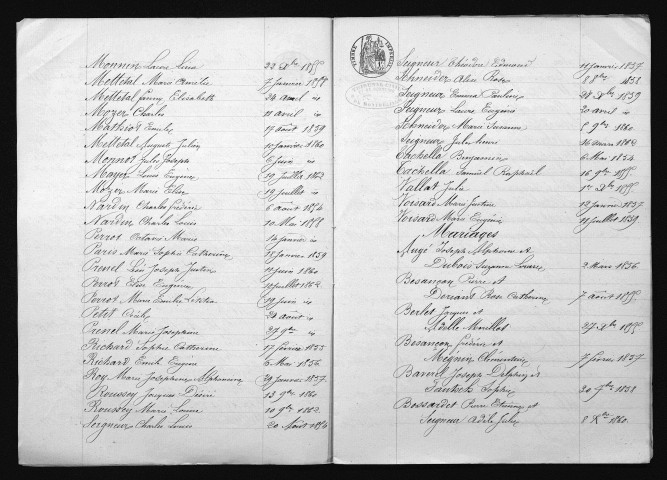 Monnin Laure Lina 22 Xbre 1855
Mettetal Marie Amélie 7 Janvier 1858
Mettetal Fanny Elisabeth 24 avril id
Mozer Charles 11 avril id
Mathiot Emile 17 août 1859
Mettetal August Julien 10 janvier 1860
Monnot Jules Joseph 6 juin id
Mayer Louis Eugène 29 Juillet 1862
Mozer Marie Elise 19 Juillet id
Nardin Charles Frédéric 6 août 1854
Nardin Charles Louis 10 Mai 1858
Perrot Octavie Marie 14 janvier id
Paris Marie Sophie Catherine 18 janvier 1859
Prenel Léon Joseph Justin 11 juin 1860
Perrot Elise Eugénie 19 juillet 1862
Perrot Marie Emilie Létitia 29 juin id
Petit Cécile 21 août id
Prenel Marie Josephine 27 9bre id
Richard Sophie Catherine 17 février 1855
Richard Emile Eugène 5 Mai 1856
Roy Marie Josephine Alphonsine 29 Janvier 1857
Roussey Jacques Désiré 13 9bre 1860
Roussey Marie Louise 10 9bre 1862
Seigneur Charles Louis 20 Août 1856
TIMBRE IMPERIAL
Seigneur Théodore Edmond 11 janvier 1857
Schneider Alex Rose 8 8bre 1858
Seigneur Emma Pauline 24 Xbre 1859
Seigneur Laure Eugénie 20 avril id
Schneider Marie Suzanne 5 9bre 1860
Seigneur Jules henri 16 mars 1862
Tachella Benjamin 6 Mai 1854
Tachella Samuel Raphaël 16 9bre 1855
Vallat Julie 1er Xbre 1855
Versard Marie Justine 13 janvier 1857
Versard Marie Eugénie 19 juillet 1859
Mariages
Augé Joseph Alphonse et
Dubois Suzanne Louise 2 Mars 1856
Besançon Pierre et
Rose Catherine 7 août 1855
Berlet Jacques et
Adèle Mouillet 27 Xbre 1855
Besançon Frédéric et
Mégnin Clémentine 7 février 1857
Joseph Delphin et
Sophie 20 9bre 1858
Bossardet Pierre Etienne et
Seigneur Adèle Julie 8 Xbre 1860